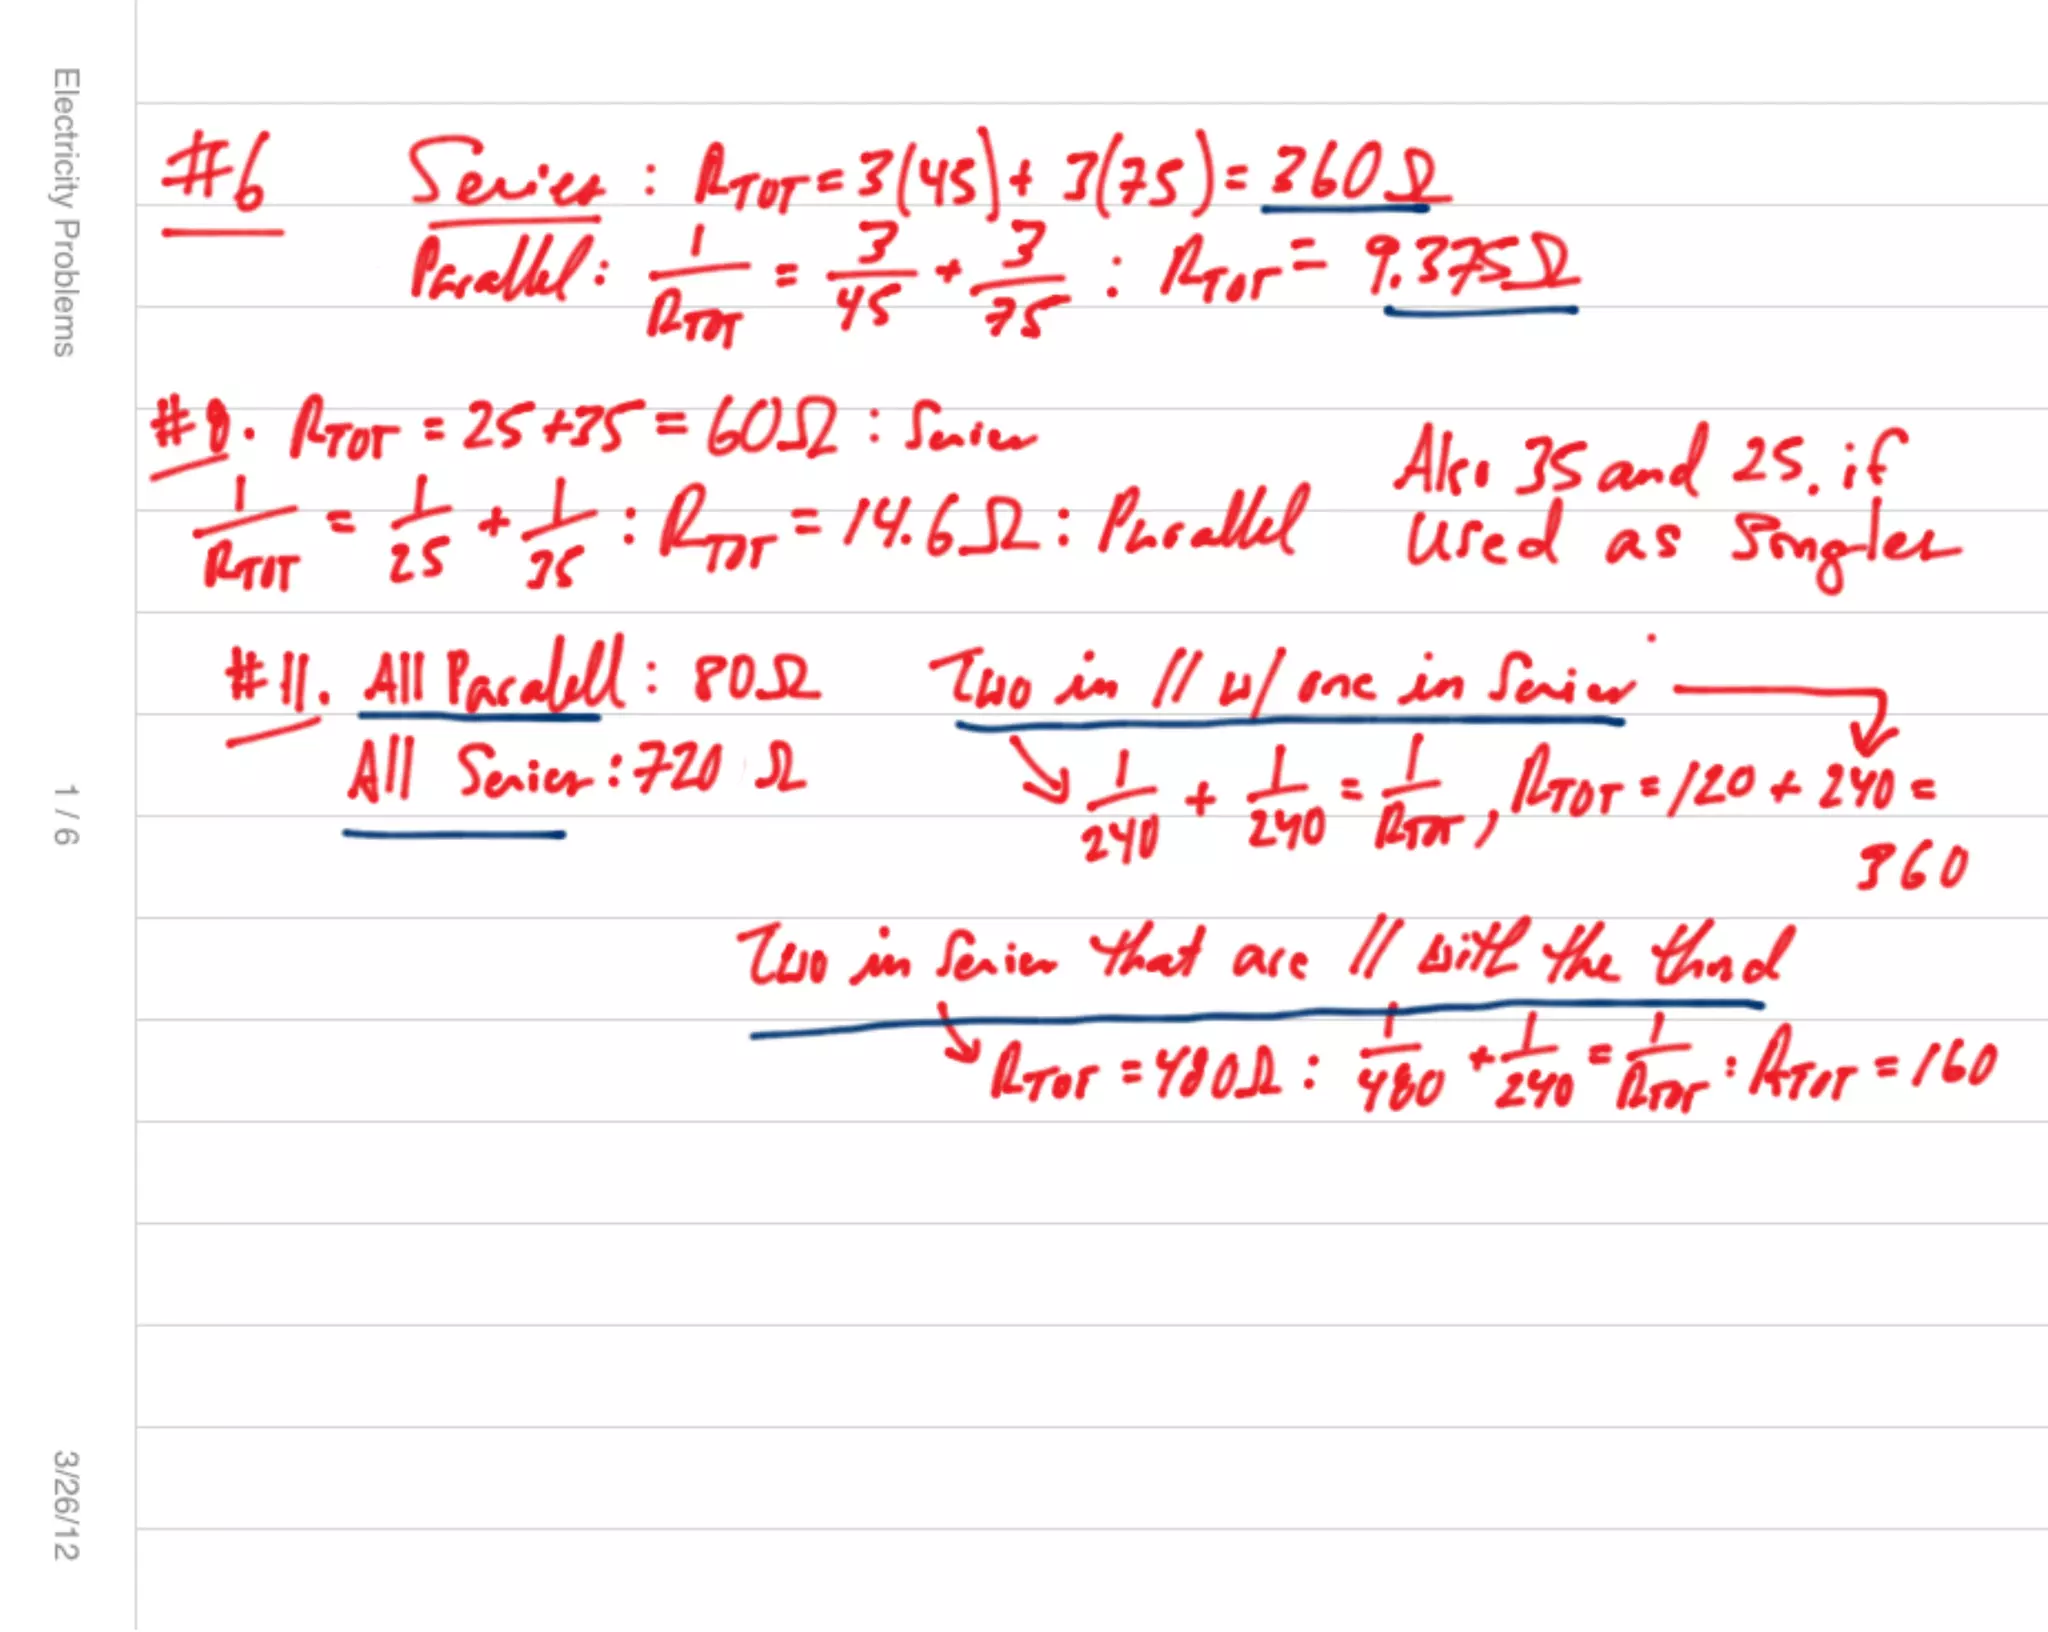 Electricity Problems
1 / 6
3/26/12
#6 Series : RTOT = 3(45) + 3(75) = 360Ω
Parallel: 1/RTOT = 3/45 + 3/75 : RTOT = 9.375Ω
#8. RTOT = 25 + 35 = 60Ω : Series
1/RTOT = 1/25 + 1/35 : RTOT = 14.6Ω : Parallel
Also 35 and 25. if
Used as Singles
#11. All Paralell : 80Ω
All Series : 720 Ω
Two in // w/ one in Series
1/240 + 1/240 = 1/RTOT, RTOT = 120 + 240 =
360
Two in Series that are // with the third
RTOT = 480Ω : 1/480 + 1/240 = 1/RTOT : RTOT = 160